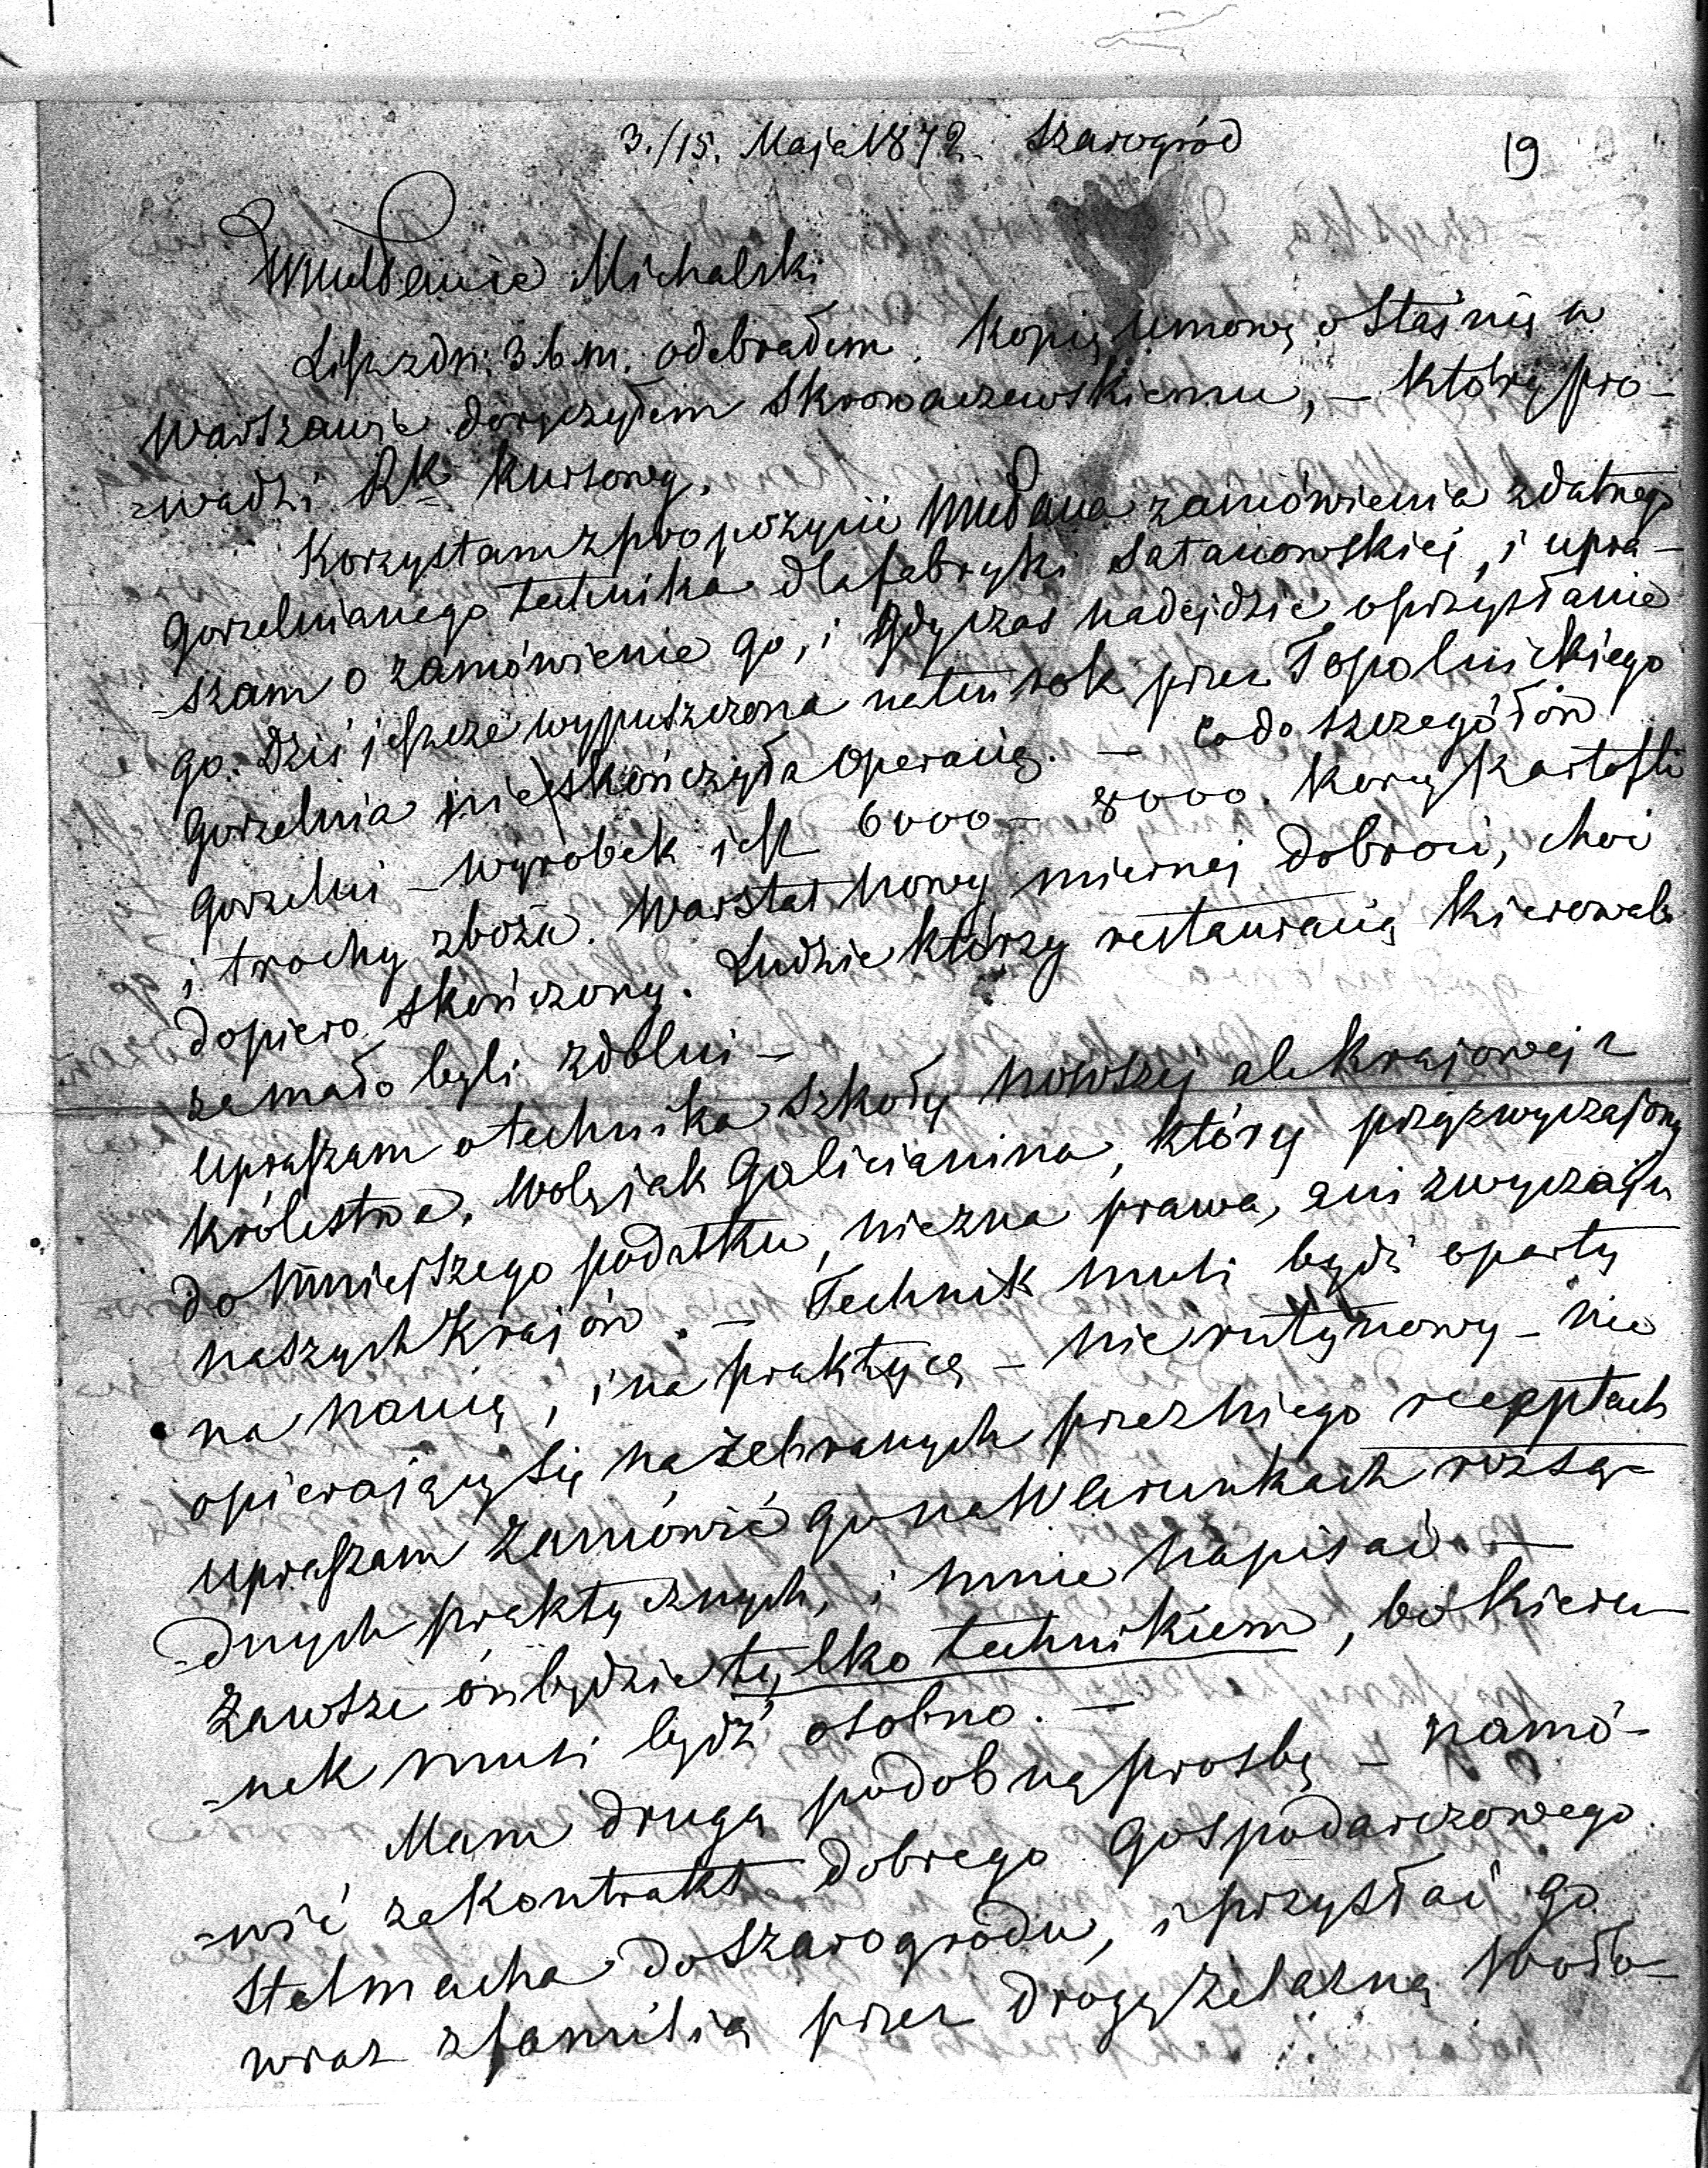 3./15. Maja 1872. Szarogród
19
WMuδanie Michalski
List z dn: 3 b. m. odebrałem. Kopię umowy o Staśnię w
Warszawie doręczyłem Skrowaczewskiemu, – który pro-
=wadzi Rk kursowy.
Korzystam z propozycii WMuδana zamówienia zdatnego
gorzelnianego technika dla fabryki Satanowskiej, i upra-
=szam o zamówienie go, i gdy czas nadejdzie o przysłanie
go. Dziś jeszcze wypuszczona na ten rok przez Topolnickiego
gorzelnia nie skończyła operacią. – Co do szczegółów
gorzelni – wyrobek jest 6000 – 8000. korcy kartofli
i trochy zboża. Warstat nowy miernej dobroci, choć
dopiero skończony. Ludzie którzy restauracią kierowali
za mało byli zdolni –
Upraszam o technika szkoły nowszej ale krajowej z
Królestwa. Wolę jak Galicianina, który przyzwyczajony
do mniejszego podatku, nie zna prawa, ani zwyczaju
naszych krajów. – Technik musi bydź oparty
na nauią, i na praktycą – nie rutynowy – nie
opierający się na zebranych przez niego receptach
Upraszam zamówić go na warunkach rozsą-
=dnych praktycznych, i mnie napisać. –
Zawsze on będzie tylko technikiem, bo kieru-
=nek musi bydź osobno. –
Mam drugą podobną prosbę – namó-
=wić za kontrakt dobrego gospodarczowego
Stelmacha do Szarogrodu, i przysłać go
wraz z familią przez drogę żelazną Woło-